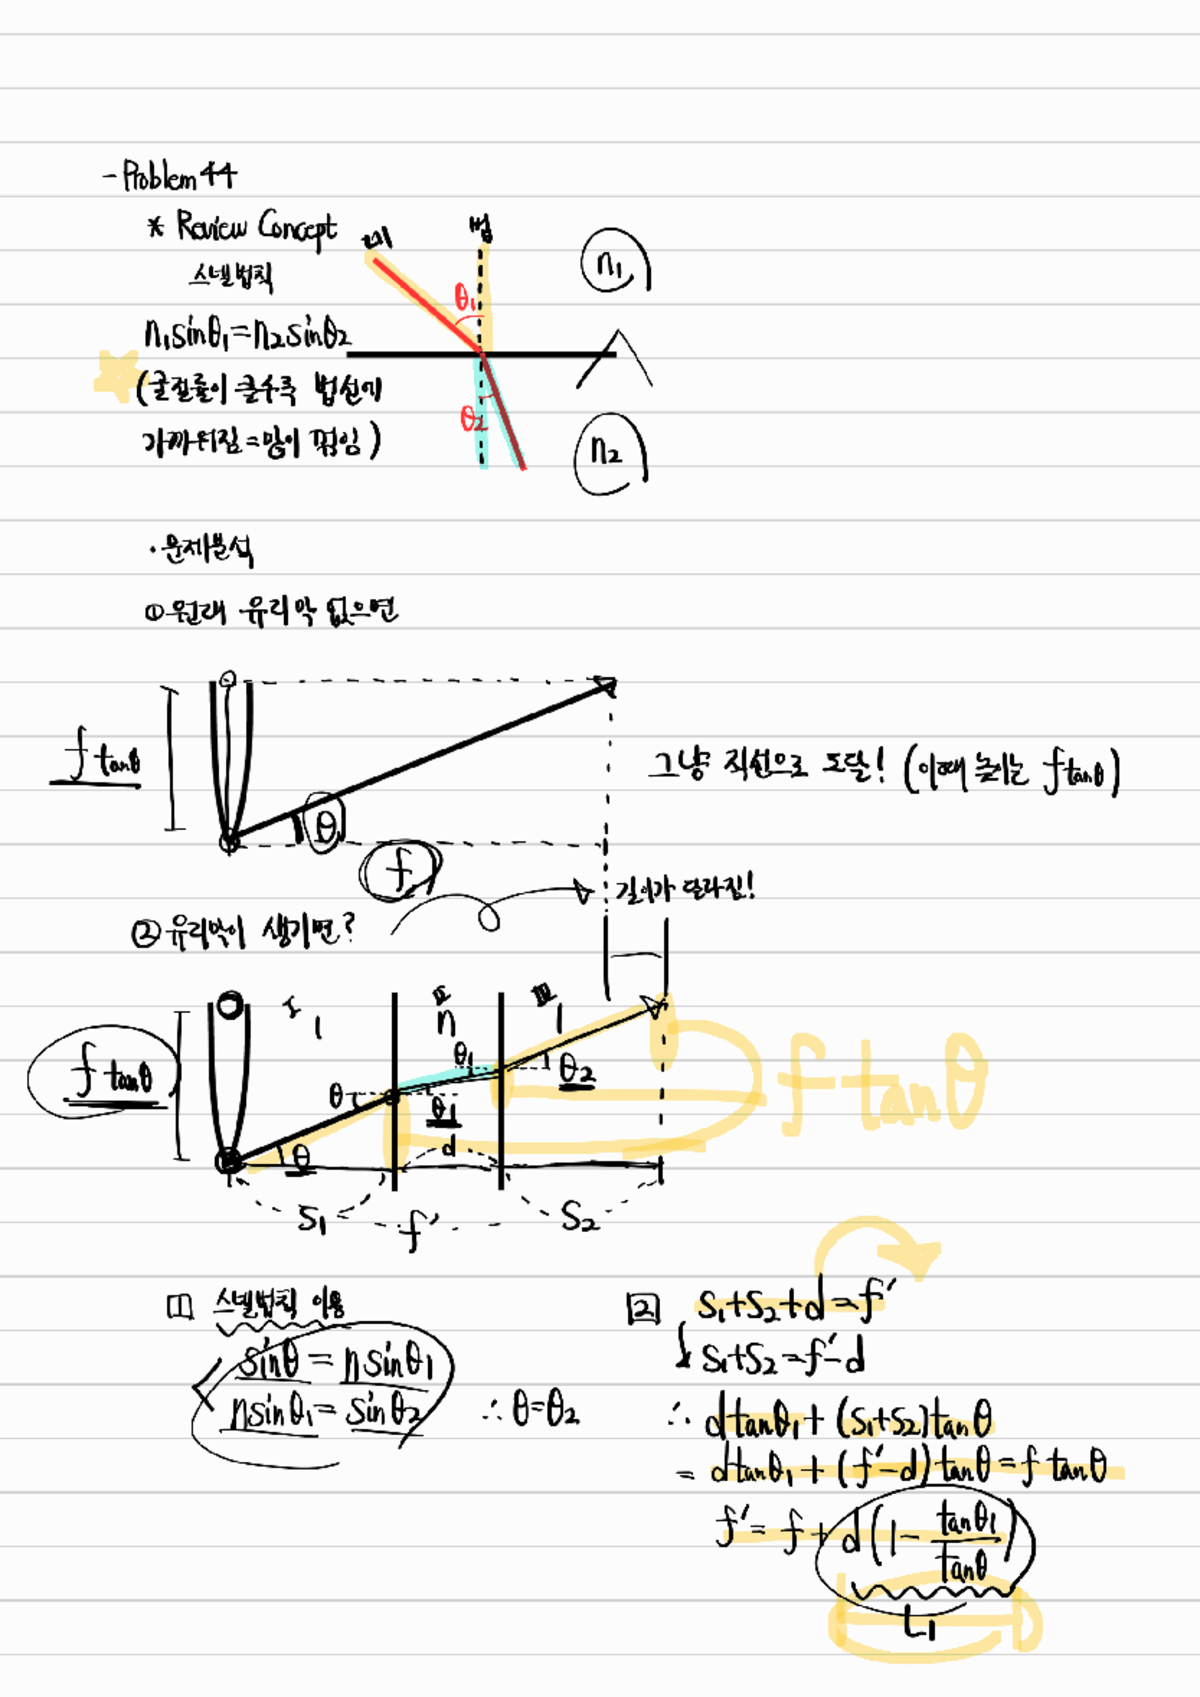 - Problem 44
* Review Concept
스넬법칙
n₁sinθ₁=n₂sinθ₂
(굴절률이 클수록 법선에
가까워짐=많이 꺾임)
법
n₁
θ₁
θ₂
n₂
·문제분석
①원래 유리막 없으면
f tanθ
θ
f
그냥 직선으로 도달! (이때 높이는 f tanθ)
길이가 달라짐!
②유리막이 생기면?
I
1
II
n
III
1
f tanθ
θ
θ
θ₁
θ₁
d
θ₂
f tanθ
S₁
f'
S₂
1 스넬법칙 이용
sinθ = nsinθ₁
nsinθ₁ = sinθ₂ ∴ θ=θ₂
2 S₁+S₂+d=f'
S₁+S₂=f'-d
∴ dtanθ₁+(S₁+S₂)tanθ
= dtanθ₁+(f'-d)tanθ=f tanθ
f' = f+d(1-tanθ₁/tanθ)
L₁